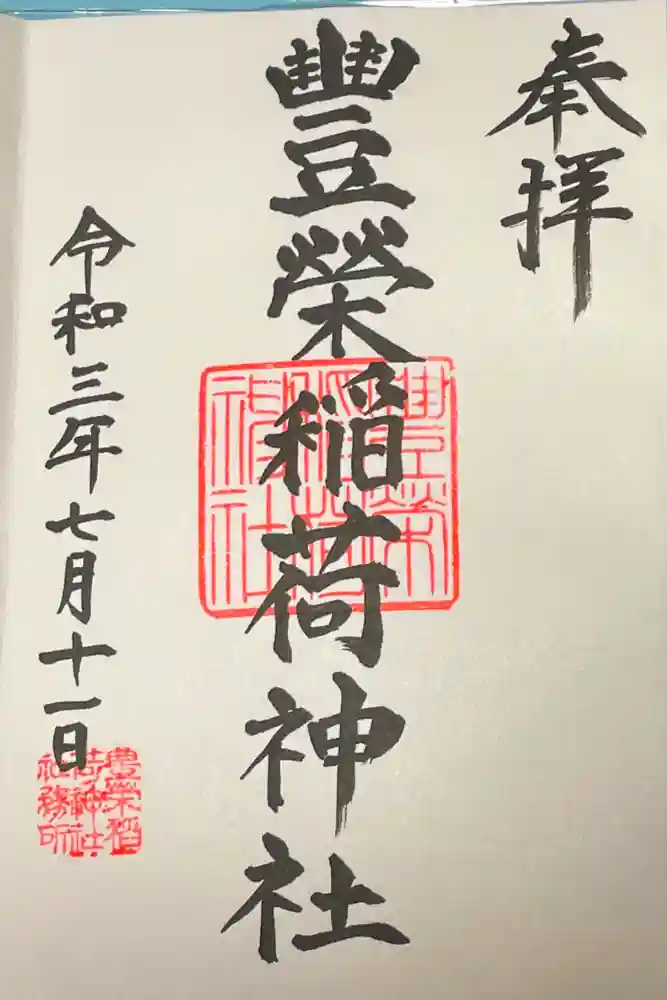 奉拝
豐榮稲荷神社
令和三年七月十一日
豊榮
稲荷
神社
豊榮稲
荷神社
社務所